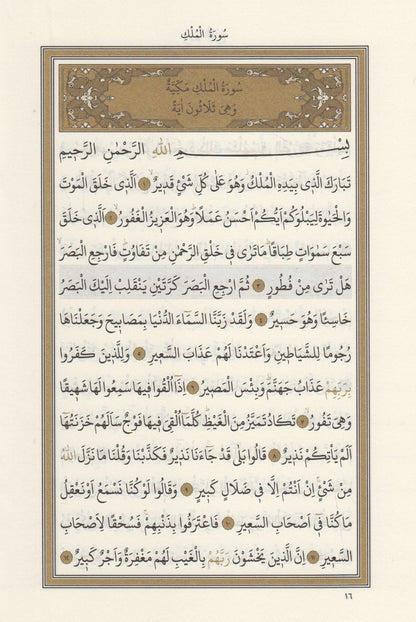 سُورَةُ الْمُلْكِ
سُورَةُ الْمُلْكِ مَكِّيَّةٌ
وَهِىَ ثَلَاثُونَ اٰيَةً
بِسْمِ اللّٰهِ الرَّحْمٰنِ الرَّحٖيمِ
تَبَارَكَ الَّذٖى بِيَدِهِ الْمُلْكُ وَهُوَ عَلٰى كُلِّ شَىْءٍ قَدٖيرٌ ﴿١﴾ اَلَّذٖى خَلَقَ الْمَوْتَ
وَالْحَيٰوةَ لِيَبْلُوَكُمْ اَيُّكُمْ اَحْسَنُ عَمَلًا وَهُوَ الْعَزٖيزُ الْغَفُورُ ﴿٢﴾ اَلَّذٖى خَلَقَ
سَبْعَ سَمٰوَاتٍ طِبَاقًا مَا تَرٰى فٖى خَلْقِ الرَّحْمٰنِ مِنْ تَفَاوُتٍ فَارْجِعِ الْبَصَرَ
هَلْ تَرٰى مِنْ فُطُورٍ ﴿٣﴾ ثُمَّ ارْجِعِ الْبَصَرَ كَرَّتَيْنِ يَنْقَلِبْ اِلَيْكَ الْبَصَرُ
خَاسِئًا وَهُوَ حَسٖيرٌ ﴿٤﴾ وَلَقَدْ زَيَّنَّا السَّمَاءَ الدُّنْيَا بِمَصَابٖيحَ وَجَعَلْنَاهَا
رُجُومًا لِلشَّيَاطٖينِ وَاَعْتَدْنَا لَهُمْ عَذَابَ السَّعٖيرِ ﴿٥﴾ وَلِلَّذٖينَ كَفَرُوا
بِرَبِّهِمْ عَذَابُ جَهَنَّمَ وَبِئْسَ الْمَصٖيرُ ﴿٦﴾ اِذَا اُلْقُوا فٖيهَا سَمِعُوا لَهَا شَهٖيقًا
وَهِىَ تَفُورُ ﴿٧﴾ تَكَادُ تَمَيَّزُ مِنَ الْغَيْظِ كُلَّمَا اُلْقِىَ فٖيهَا فَوْجٌ سَاَلَهُمْ خَزَنَتُهَا
اَلَمْ يَاْتِكُمْ نَذٖيرٌ ﴿٨﴾ قَالُوا بَلٰى قَدْ جَاءَنَا نَذٖيرٌ فَكَذَّبْنَا وَقُلْنَا مَا نَزَّلَ اللّٰهُ
مِنْ شَىْءٍ اِنْ اَنْتُمْ اِلَّا فٖى ضَلَالٍ كَبٖيرٍ ﴿٩﴾ وَقَالُوا لَوْ كُنَّا نَسْمَعُ اَوْ نَعْقِلُ
مَا كُنَّا فٖى اَصْحَابِ السَّعٖيرِ ﴿١٠﴾ فَاعْتَرَفُوا بِذَنْبِهِمْ فَسُحْقًا لِاَصْحَابِ
السَّعٖيرِ ﴿١١﴾ اِنَّ الَّذٖينَ يَخْشَوْنَ رَبَّهُمْ بِالْغَيْبِ لَهُمْ مَغْفِرَةٌ وَاَجْرٌ كَبٖيرٌ ﴿١٢﴾
١٦